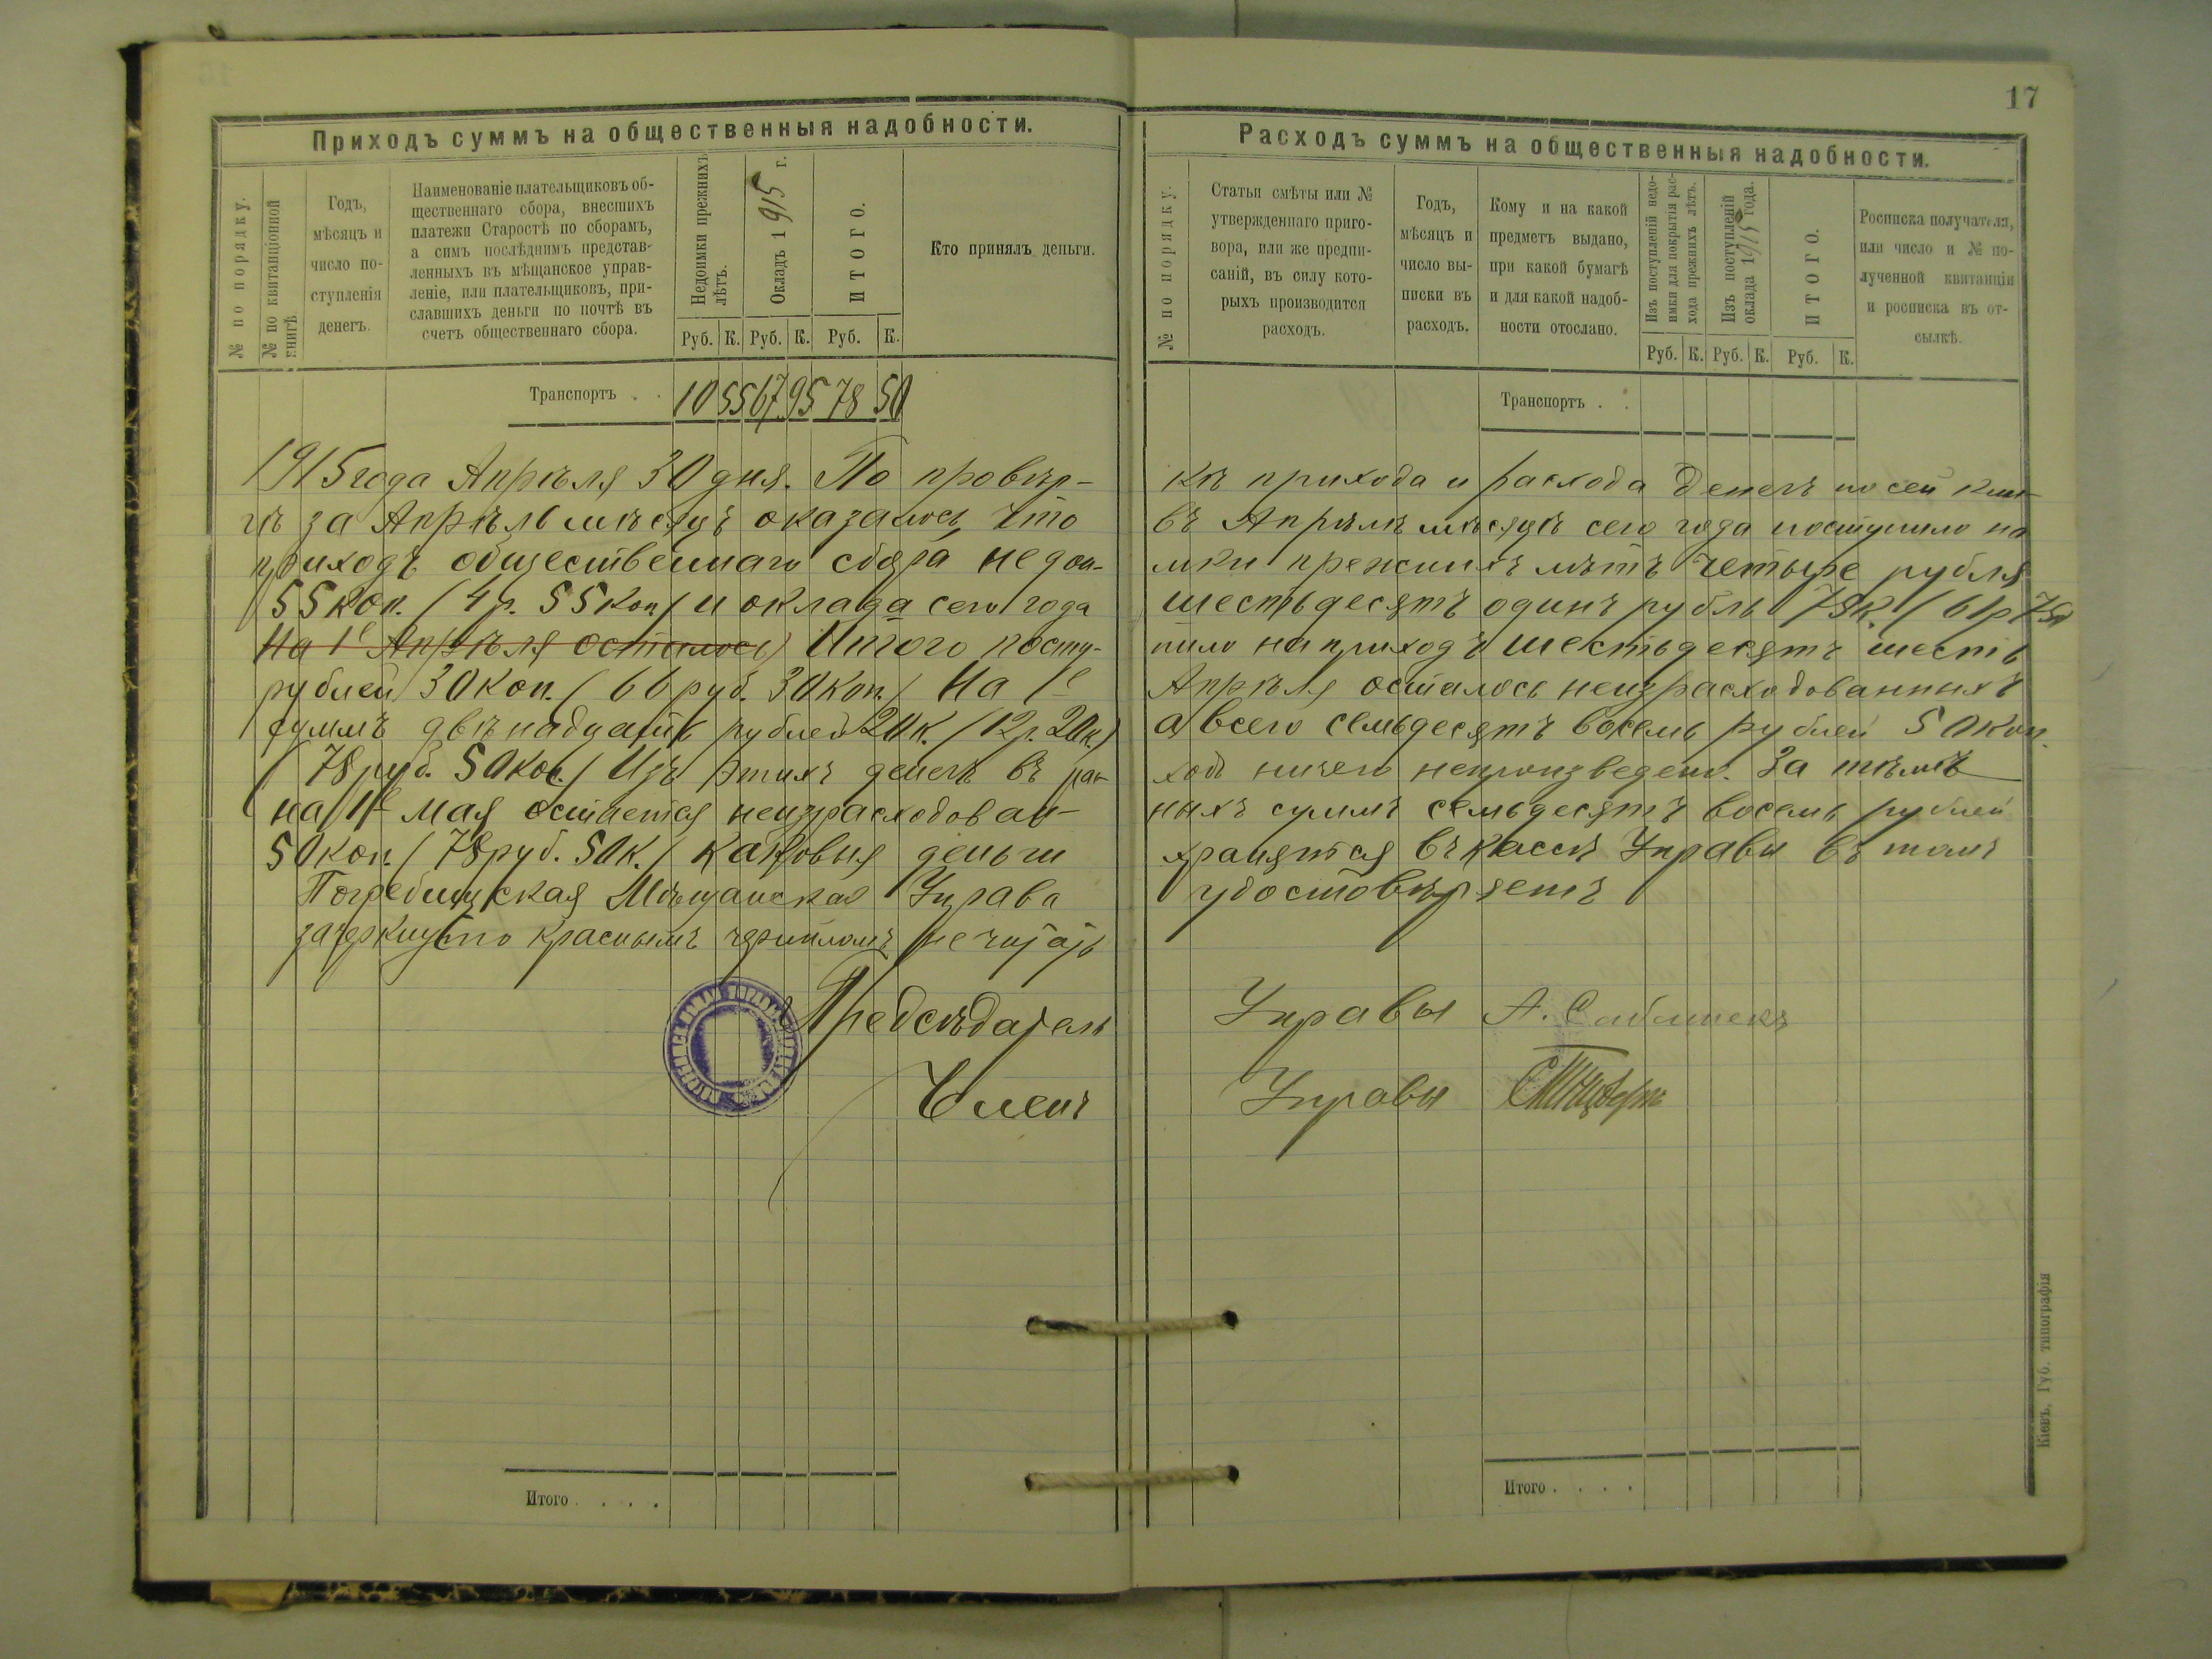 17
Приходъ суммъ на общественныя надобности.
№ по порядку.
№ по квитанціонной книгѣ
Годъ,
мѣсяцъ и
число по-
ступленія
денегъ.
Наименованіе плательщиковъ об-
щественнаго сбора, внесшихъ
платежи Старостѣ по сборамъ,
а симъ послѣднимъ представ-
ленныхъ въ мѣщанское управ-
леніе, или плательщиковъ, при-
славшихъ деньги по почтѣ въ
счетъ общественнаго сбора.
Недоимки прежнихъ
лѣтъ.
Окладъ 1915 г.
ИТОГО.
Кто принялъ деньги.
Руб. К. Руб. К. Руб. К.
Транспортъ . . 10 55 67 95 78 50
1915 года Апрѣля 30 дня. По провѣр-
гѣ за Апрѣль мѣсяцъ оказалось, что
приходъ общественнаго сбора недои-
55 коп. (4 р. 55 коп) и оклада сего года
На 1е Апрѣля осталось) Итого посту-
рублей 30 коп. (66 руб. 30 коп.) На 1е
суммъ двѣнадцать рублей 20 к. (12 р. 20 к.)
(78 руб. 50 коп.) Изъ этихъ денегъ въ рас-
на 1е мая остается неизрасходован-
50 коп. (78 руб. 50 к.) каковыя деньги
Погребищская Мѣщанская Управа
зачеркнуто краснымъ черниломъ не читать
Предсѣдатель
Членъ
Итого . . . .
Расходъ суммъ на общественныя надобности.
№ по порядку.
Статьи смѣты или №
утвержденнаго приго-
вора, или же предпи-
саній, въ силу кото-
рыхъ производится
расходъ.
Годъ,
мѣсяцъ и
число вы-
писки въ
расходъ.
Кому и на какой
предметъ выдано,
при какой бумагѣ
и для какой надоб-
ности отослано.
Изъ поступленій недо-
имки для покрытія рас-
хода прежнихъ лѣтъ.
Изъ поступленій
оклада 1915 года.
ИТОГО.
Росписка получателя,
или число и № по-
лученной квитанціи
и росписка въ от-
сылкѣ.
Руб. К. Руб. К. Руб. К.
Транспортъ . .
кѣ прихода и расхода денегъ по сей кни-
въ Апрѣлѣ мѣсяцѣ сего года поступило на
мки прежнихъ лѣтъ четыре рубля
шестьдесятъ одинъ рубль 75 к. (61 р 75
пило на приходъ шестьдесятъ шесть
Апрѣля осталось неизрасходованныхъ
а всего семьдесятъ восемь рублей 50 коп.
ходъ ничего непроизведено. За тѣмъ
ныхъ суммъ семьдесятъ восемь рублей
хранятся въ кассѣ Управы въ томъ
удостовѣряетъ
Управы А.
Управы
Итого . . . .
Кіевъ, Губ. типографія